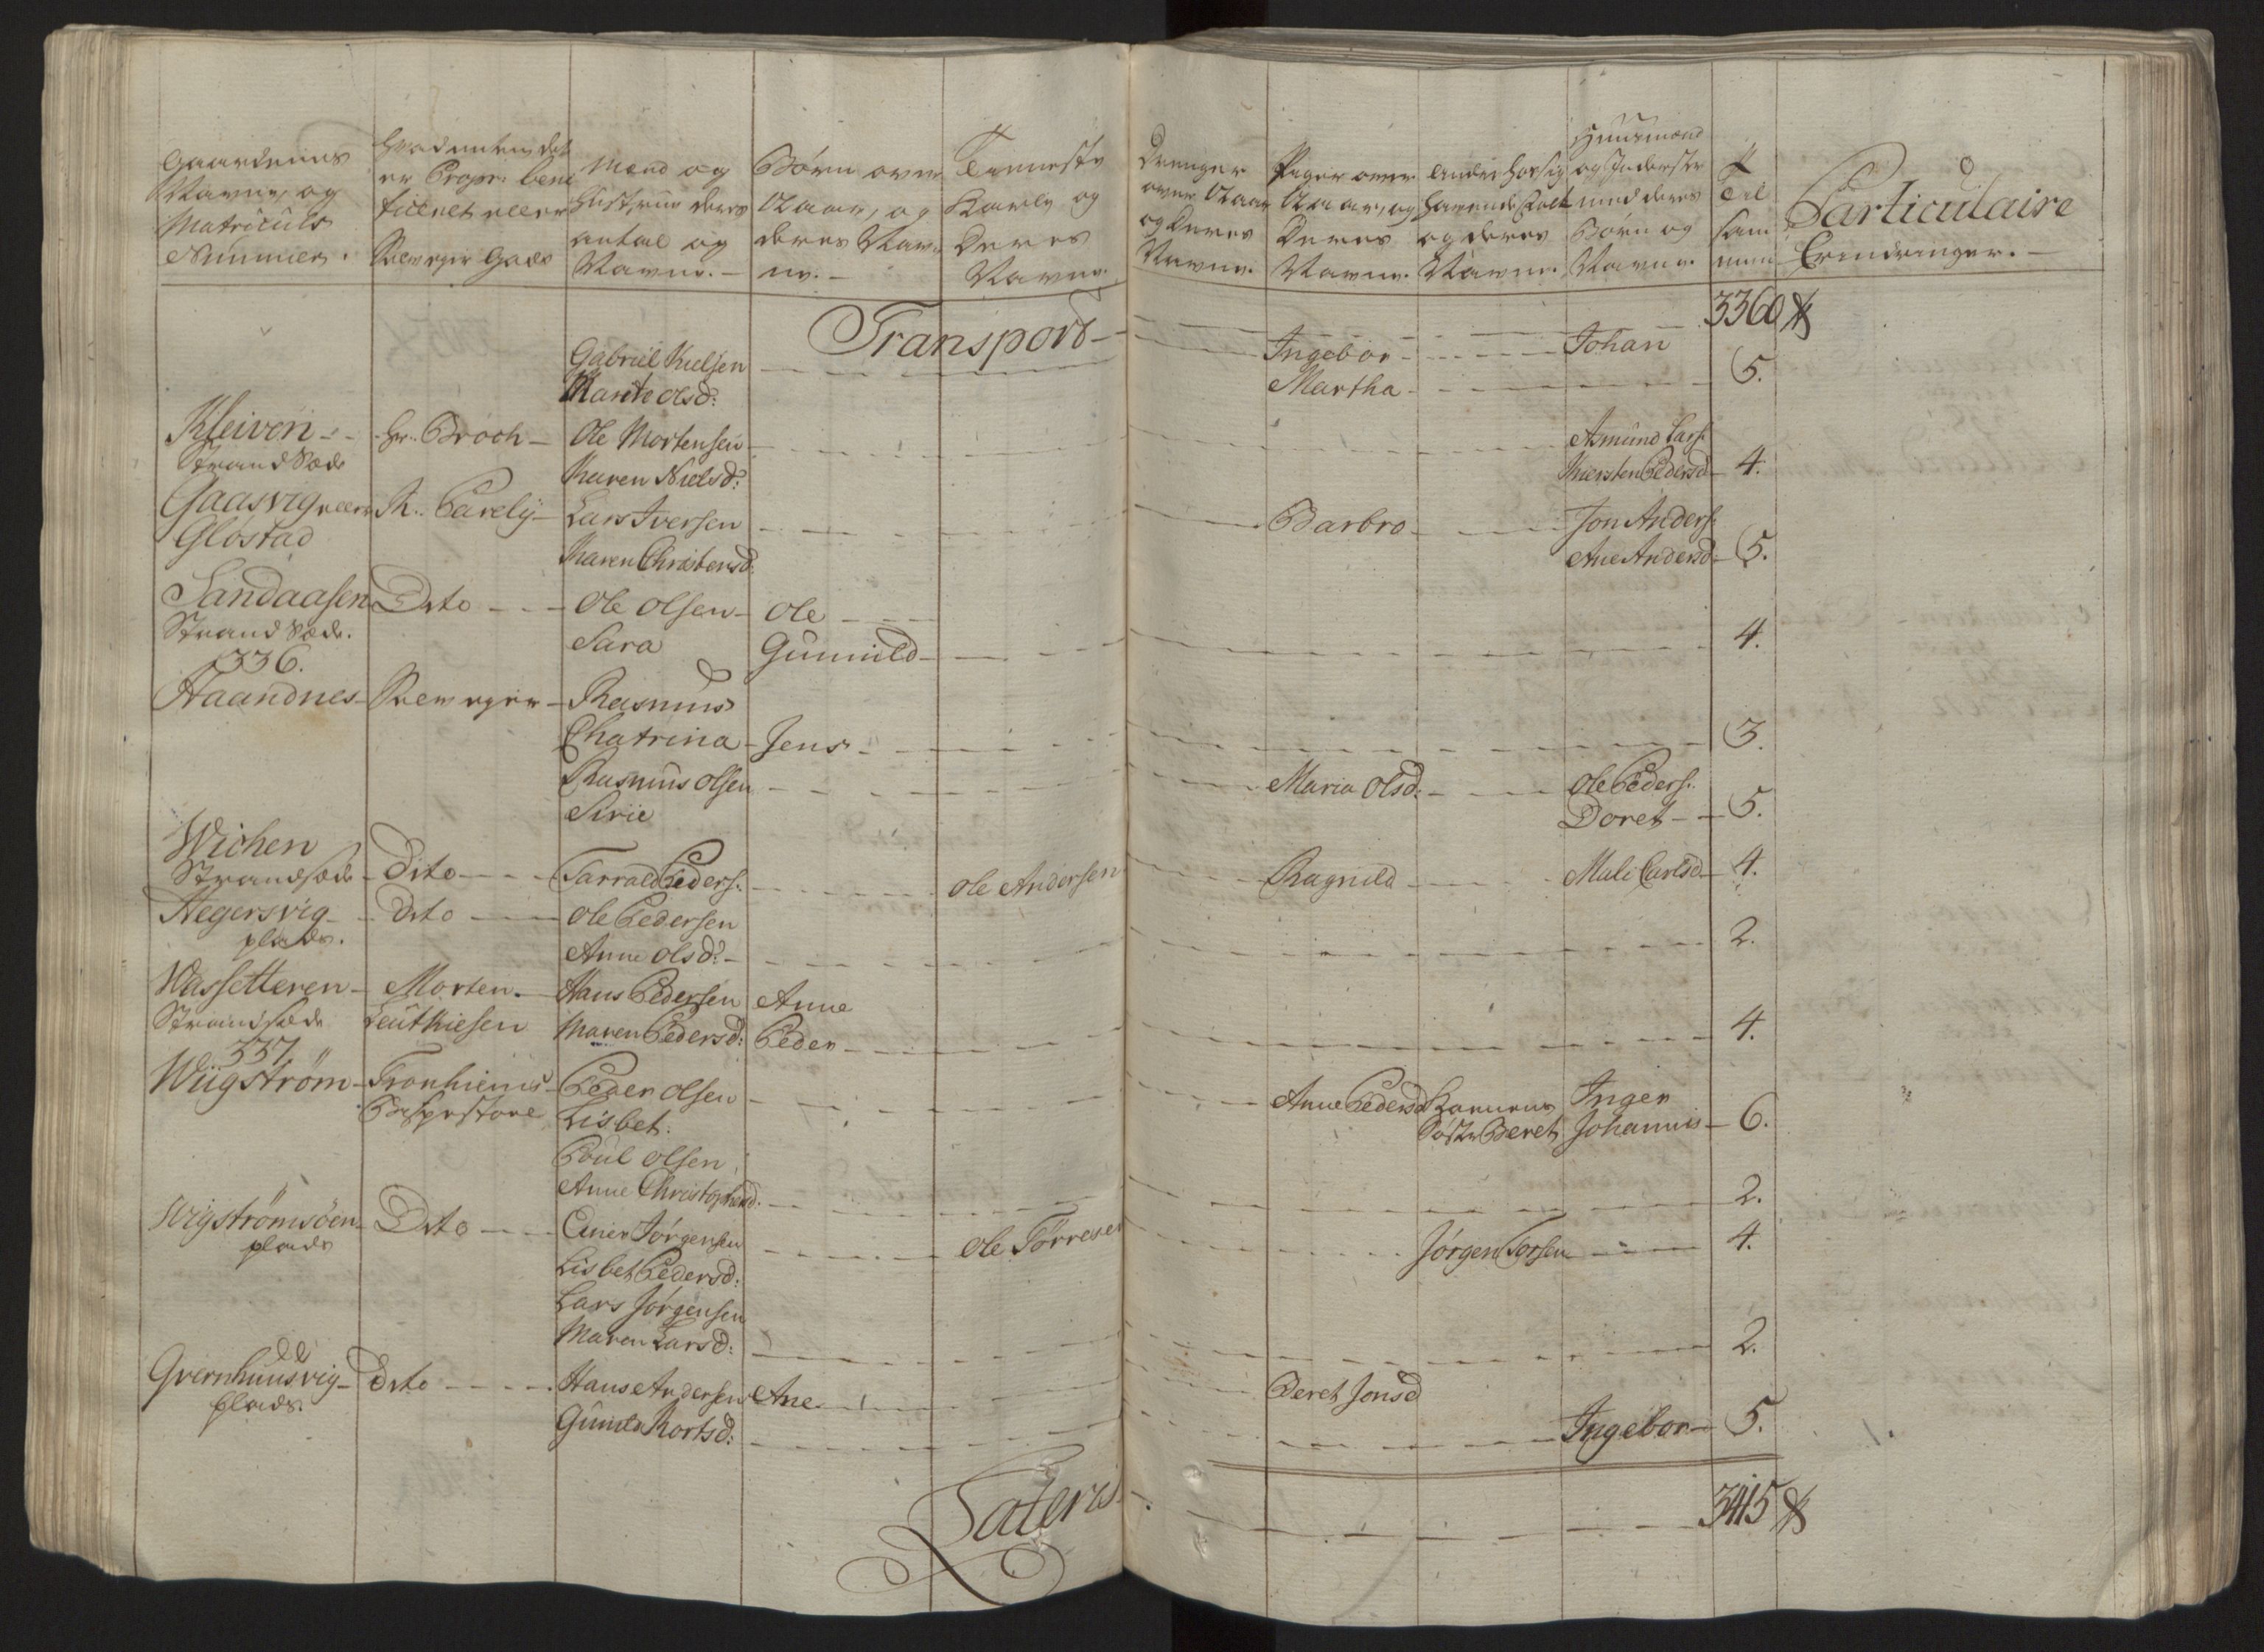 Gaardenes Navne, og Matriculs Nummer.
Hvad enten det er Propr: bene ficeret eller Selv eyer Gods
Mænd og Hustruer deres antal og Navne.
Børn over 12 Aar, og deres Nav ne.
Tieneste Karle og Deres Navne.
Drenger over 12 Aar og Deres Navne.
Piger over 12 Aar, og Deres Navne.
og deres Navne.
Huusmænd og Inderster med deres Børn og Navne.
Til sam men
Particulaire Erindringer.
Transport 3360
Gabriel Nielsen Ingebor Johan
Marite Olsd: Martha 5.
Kleiven Hr. Broch Ole Mortensen Asmund Lars:
Strand Sæde Maren Nielsd: Kiersten Pedersd 4.
Gaasvig eller R. Parely Lars Iversen Barbro Jon Anders:
Gløstad Maren Christensd: Ane Andersd 5.
Sandaasen Dito Ole Olsen Ole
Strand Sæde. Sara Gunnild 4.
336.
Haandnes Selv eyer Rasmus
Chatrina Jens 3.
Rasmus Olsen Maria Olsd: Ole Peders:
Sirie Doret 5.
Wichen
Strandsæde Dito Tarrald Peders: Ole Andersen Ragnild Mali Carlsd 4.
Hegersvig Dito Ole Pedersen
plads. Anne Olsd: 2.
Wassetteren Morten Hans Pedersen Anne
Strandsæde Leuthiesen Maren Pedersd: Peder 4.
337.
Wiigstrøm Tronhiems Peder Olsen Anne Pedersd Konens Inger
Lisbet. Søster Beret Johannis 6.
Poul Olsen
Anne Christophersd. 2.
Wigstrømsøen Dito Einer Jørgensen Ole Tørresen Jørgen Torsen 4.
plads Lisbet Pedersd:
Lars Jørgensen
Maren Larsd: 2.
Qvernhuusvig Dito Hans Andersen Ane Beret Jonsd
plads. Gunild Kortsd: Ingebor 5.
Lateris 3415